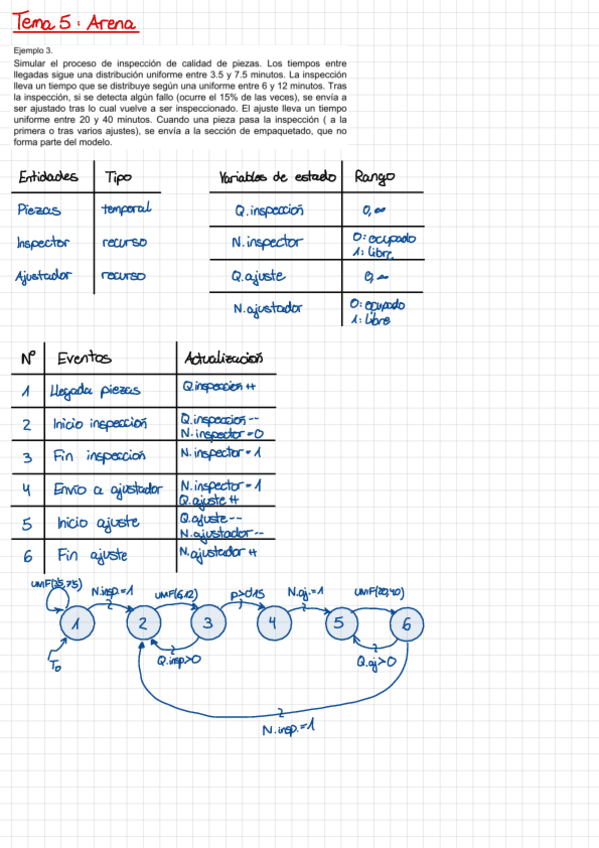 Tema 5: Arena
Ejemplo 3.
Simular el proceso de inspección de calidad de piezas. Los tiempos entre
llegadas sigue una distribución uniforme entre 3.5 y 7.5 minutos. La inspección
lleva un tiempo que se distribuye según una uniforme entre 6 y 12 minutos. Tras
la inspección, si se detecta algún fallo (ocurre el 15% de las veces), se envía a
ser ajustado tras lo cual vuelve a ser inspeccionado. El ajuste lleva un tiempo
uniforme entre 20 y 40 minutos. Cuando una pieza pasa la inspección ( a la
primera o tras varios ajustes), se envía a la sección de empaquetado, que no
forma parte del modelo.
Entidades Tipo
Piezas temporal
Inspector recurso
Ajustador recurso
Variables de estado Rango
Q.inspección 0,∞
N.inspector 0: ocupado
1: libre
Q.ajuste 0,∞
N.ajustador 0: ocupado
1: libre
Nº Eventos Actualización
1 Llegada piezas Q.inspección ++
2 Inicio inspección Q.inspección --
N.inspector=0
3 Fin inspección N.inspector=1
4 Envío a ajustador N.inspector=1
Q.ajuste ++
5 Inicio ajuste Q.ajuste --
N.ajustador --
6 Fin ajuste N.ajustador ++
N.insp.=1 UNIF(6,12) p>0'15 N.aj.=1 UNIF(20,40)
1 2 3 4 5 6
To Q.insp.>0 Q.aj>0
N.insp.=1